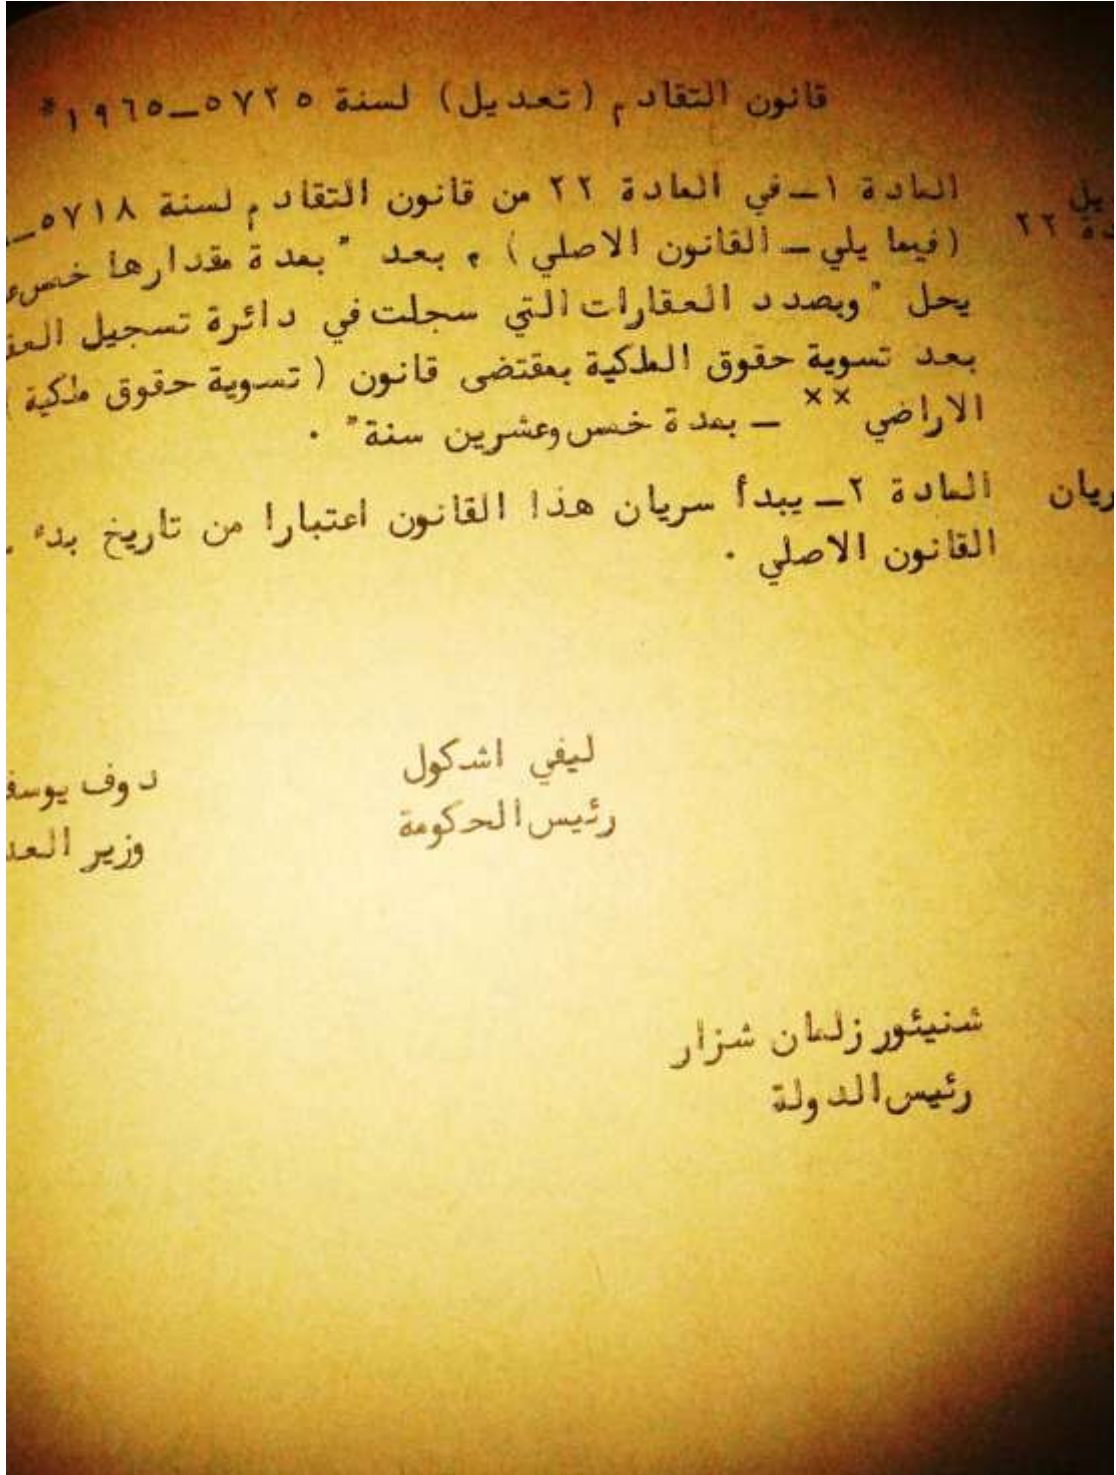 قانون التقادم (تعديل) لسنة ٥٧٢٥_١٩٦٥*
المادة ١_ في المادة ٢٢ من قانون التقادم لسنة ٥٧١٨_
٢٢
(فيما يلي _ القانون الاصلي) ، بعد " بمدة مقدارها
يحل " وبصدد العقارات التي سجلت في دائرة تسجيل
بعد تسوية حقوق الملكية بمقتضى قانون ( تسوية حقوق ملكية )
الاراضي ×× _ بمدة خمس وعشرين سنة" .
المادة ٢_ يبدأ سريان هذا القانون اعتبارا من تاريخ بدء
القانون الاصلي .
ليفي اشكول
دوف
رئيس الحكومة
وزير
شنيئور زلمان شزار
رئيس الدولة